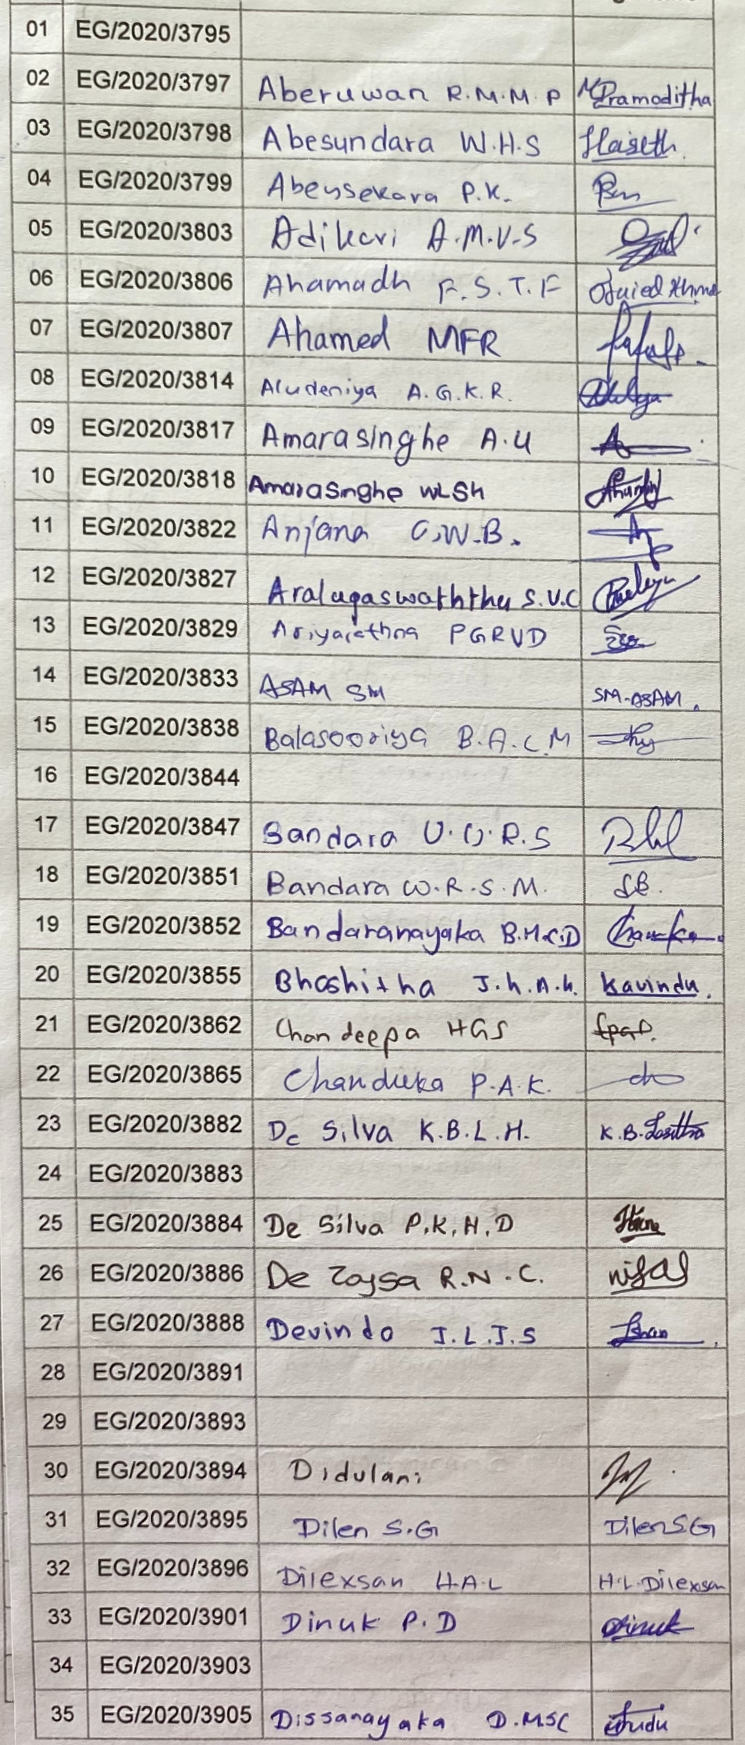 01 EG/2020/3795
02 EG/2020/3797 Aberuwan R.M.M.P Pramoditha
03 EG/2020/3798 Abesundara W.H.S Haseth
04 EG/2020/3799 Abeysekara P.K.
05 EG/2020/3803 Adikari A.M.V.S
06 EG/2020/3806 Ahamadh F.S.T.F
07 EG/2020/3807 Ahamed MFR
08 EG/2020/3814 Aludeniya A.G.K.R.
09 EG/2020/3817 Amarasinghe A.U
10 EG/2020/3818 Amarasinghe WLSH
11 EG/2020/3822 Anjana G.W.B.
12 EG/2020/3827 Aralugaswaththa S.V.C
13 EG/2020/3829 Ariyarathna PGRVD
14 EG/2020/3833 ASAM SM SM-ASAM.
15 EG/2020/3838 Balasooriya B.A.C.M
16 EG/2020/3844
17 EG/2020/3847 Bandara
18 EG/2020/3851 Bandara W.R.S.M. SB.
19 EG/2020/3852 Bandaranayaka B.M.C.D
20 EG/2020/3855 Bhashitha J.K.A.K. Kavindu.
21 EG/2020/3862 Chandeepa HGS
22 EG/2020/3865 Chanduka P.A.K.
23 EG/2020/3882 De Silva K.B.L.H. K.B.Lasitha
24 EG/2020/3883
25 EG/2020/3884 De Silva P.K.H.D
26 EG/2020/3886 De Zoysa R.N.C.
27 EG/2020/3888 Devindo J.L.J.S
28 EG/2020/3891
29 EG/2020/3893
30 EG/2020/3894 Didulani
31 EG/2020/3895 Dilen S.G Dilen S.G
32 EG/2020/3896 Dilexsan H.A.L H.L.Dilexsan
33 EG/2020/3901 Dinuk P.D Dinuk
34 EG/2020/3903
35 EG/2020/3905 Dissanayaka D.MSC